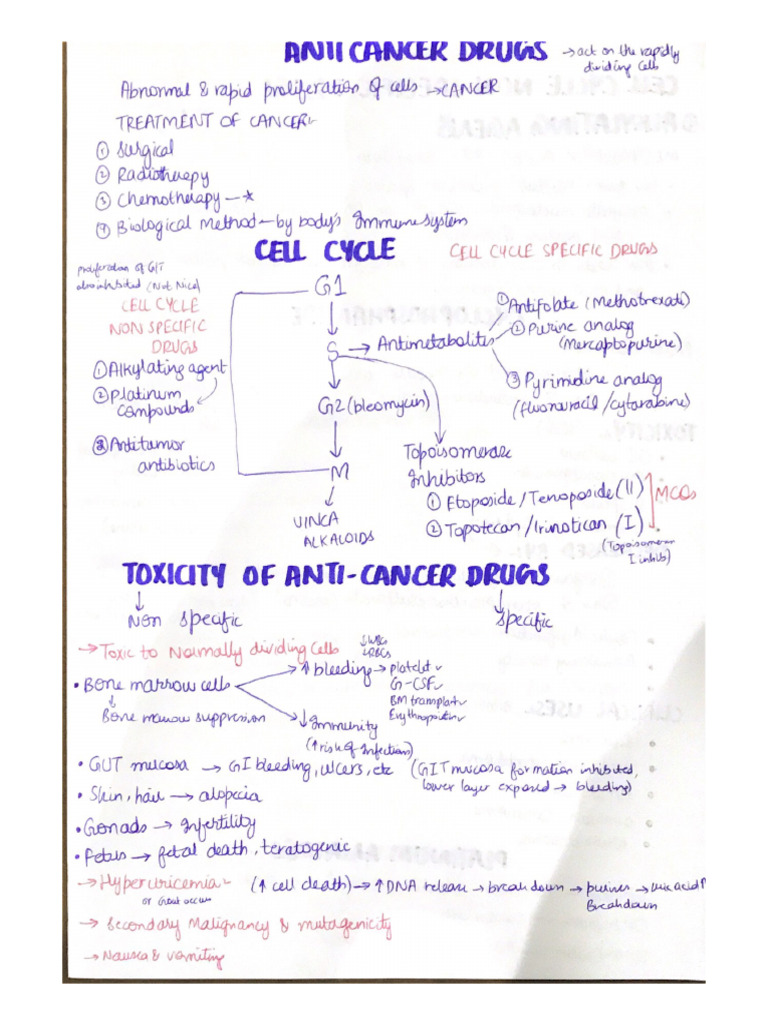 ANTICANCER DRUGS → act on the rapidly
dividing cells
Abnormal & rapid proliferation of cells → CANCER
TREATMENT OF CANCER:-
① Surgical
② Radiotherapy
③ Chemotherapy —*
④ Biological Method — by body's Immune system
CELL CYCLE
CELL CYCLE SPECIFIC DRUGS
proliferation of GIT
also inhibited (Not Nice)
CELL CYCLE
NON SPECIFIC
DRUGS
① Alkylating agent
② Platinum
compounds
③ Antitumor
antibiotics
G1
S → Antimetabolites
① Antifolate (Methotrexate)
② Purine analog
(Mercaptopurine)
③ Pyrimidine analog
(fluorouracil/cytarabine)
G2 (bleomycin)
M
VINCA
ALKALOIDS
Topoisomerase
Inhibitors
① Etoposide/Tenoposide (II)
② Topotecan/Irinotican (I)
MCQs
(Topoisomerase
I inhib)
TOXICITY OF ANTI-CANCER DRUGS
Non specific
specific
→ Toxic to Normally dividing Cells
↓WBCs
↓RBCs
• Bone marrow cells
↓
Bone marrow suppression
↑ bleeding → platelet
G-CSF
BM transplant
Erythropoietin
↓ Immunity
(↑ risk of Infections)
• GUT mucosa → GI bleeding, ulcers, etc (GIT mucosa formation inhibited,
lower layer exposed → bleeding)
• Skin, hair → alopecia
• Gonads → Infertility
• Fetus → fetal death, teratogenic
→ Hyperuricemia (↑ cell death) → ↑ DNA release → breakdown → purines → uric acid ↑
or Gout occurs
Breakdown
→ Secondary Malignancy & mutagenicity
→ Nausea & vomiting